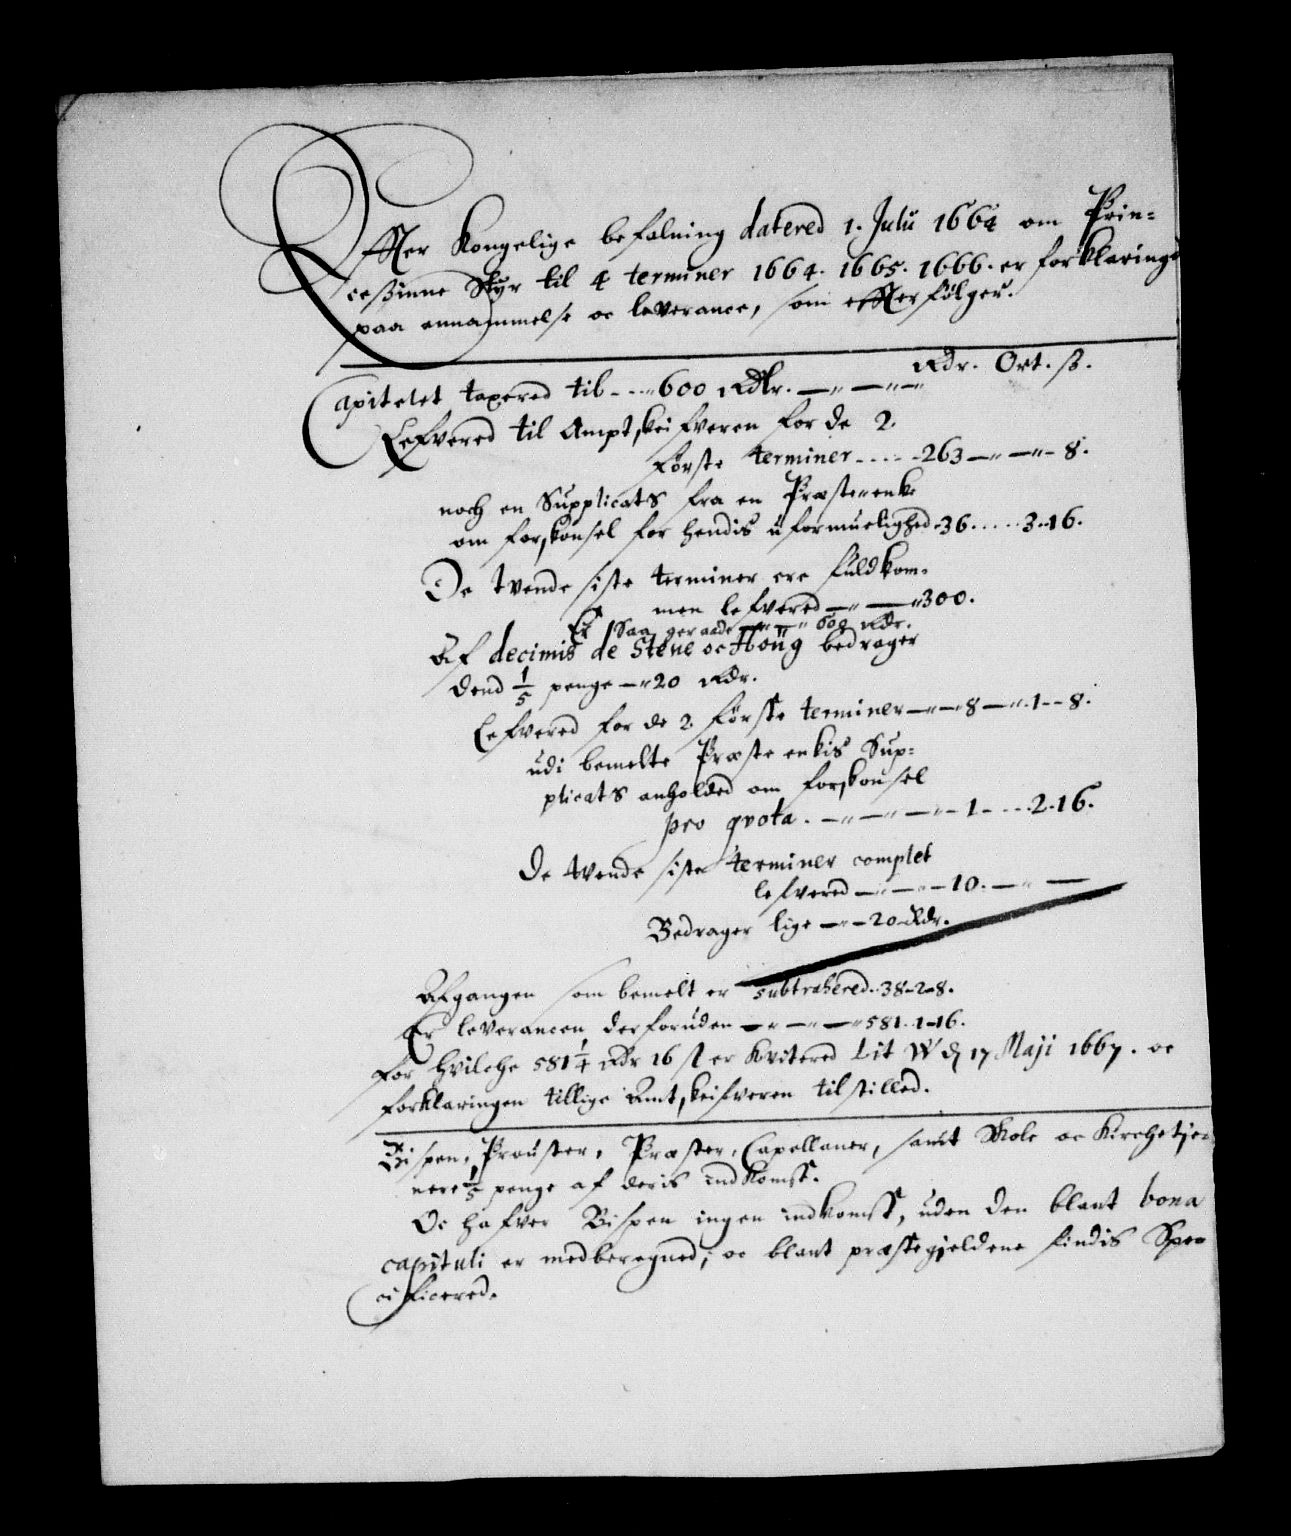 Effter Kongelige befalning datered 1. Julii 1664 om Prin=
cessinne Styr til 4 terminer 1664. 1665. 1666. er forklaringe
paa annammelse oc leverance, som effterfølger.
Rdr. Ort. ß.
Capitelet taxered til - - - 600 Rdlr.
Lefvered til Amptskrifveren for de 2.
første terminer - - - - 263 — — 8.
noch en Supplicats fra en Præsteenke
om forskonsel for hendis uformuelighed - 36 - - - 3 - 16.
De tvende siste terminer ere fuldkom-
men lefvered — — 300.
Er saa geraade — — 600 Rdr.
Af decimis de Stene oc Houg bedrager
dend 1/5 penge — 20 Rdr.
Lefvered for de 2 første terminer — — 8 — 1 - - 8.
udi bemelte Præsteenkis Sup=
plicats anholded om forskonsel
pro qvota . — — — 1 - - - 2 - 16.
De tvende siste terminer complet
lefvered — — — 10. — —
Bedrager lige — — 20 Rdr.
Afgangen som bemelt er subtrahered. 38 - 2 - 8.
Er leverancen derforuden — — — 581 . 1 - 16.
for hvilche 581 1/4 Rdr 16 ß er kvitered Lit W d 17 Maji 1667. oc
forklaringen tillige Amtskrifveren tilstilled.
Bispen, Prouster, Præster, Capellaner, samt Skole oc Kirchetje-
nere 1/5 penge af deris indkomst.
Oc hafver Bispen ingen indkomst, uden den blant bona
capituli er medberegned; oc blant præstegjeldene findis Spe-
cificered.